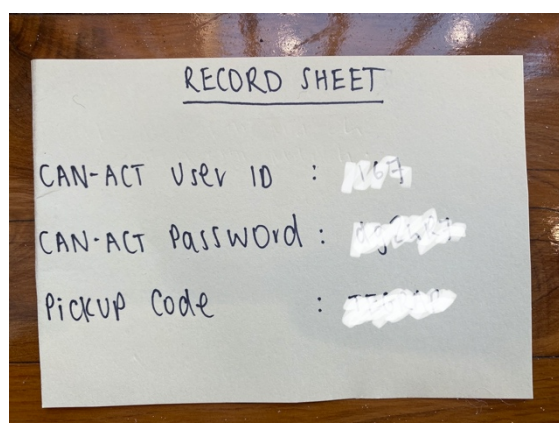 RECORD SHEET
CAN-ACT User ID :
CAN-ACT Password :
Pickup Code :